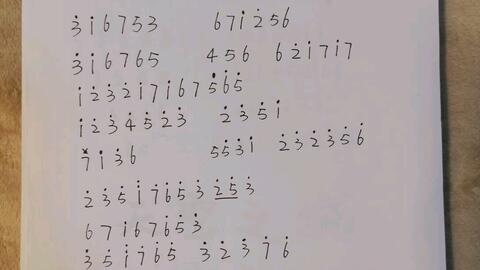 3̇ i 6 7 5 3   6 7 i 2̇ 5 6
3̇ i 6 7 6 5   4 5 6   6 2̇ i 7 i 7
i 2̇ 3̇ 2̇ i 7 i 6 7 5̇ 6̇ 5̇
i 2̇ 3̇ 4̇ 5̇ 2̇ 3̇   2̇ 3̇ 5̇ i
7̇ i 3̇ 6   5 5 3̇ i   2̇ 3̇ 2̇ 3̇ 5̇ 6̇
2̇ 3̇ 5̇ i 7̇ 6̇ 5̇ 3̇ 2̇ 5̇ 3̇
6 7 i 6 7 6̇ 5̇ 3̇
3̇ 5̇ i 7̇ 6̇ 5̇   3̇ 2̇ 3̇ 7̇ 6̇